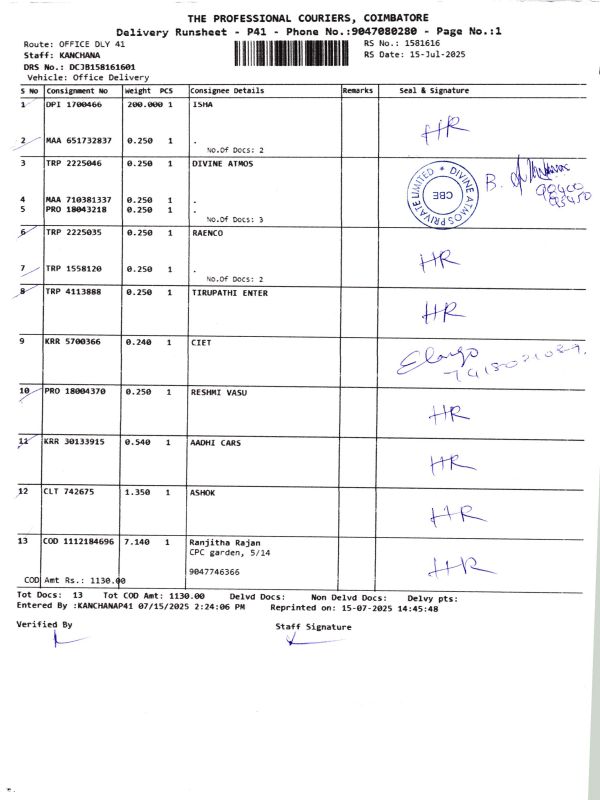 THE PROFESSIONAL COURIERS, COIMBATORE
Delivery Runsheet - P41 - Phone No.:9047080280 - Page No.:1
Route: OFFICE DLY 41 RS No.: 1581616
Staff: KANCHANA RS Date: 15-Jul-2025
DRS No.: DCJB158161601
Vehicle: Office Delivery
S No Consignment No Weight PCS Consignee Details Remarks Seal & Signature
1 DPI 1700466 200.000 1 ISHA
HR
2 MAA 651732837 0.250 1 .
No.Of Docs: 2
3 TRP 2225046 0.250 1 DIVINE ATMOS
DIVINE ATMOS PRIVATE LIMITED * CBE
B.
4 MAA 710381337 0.250 1 .
5 PRO 18043218 0.250 1 .
No.Of Docs: 3
6 TRP 2225035 0.250 1 RAENCO
HR
7 TRP 1558120 0.250 1 .
No.Of Docs: 2
8 TRP 4113888 0.250 1 TIRUPATHI ENTER
HR
9 KRR 5700366 0.240 1 CIET
Elango
10 PRO 18004370 0.250 1 RESHMI VASU
HR
11 KRR 30133915 0.540 1 AADHI CARS
HR
12 CLT 742675 1.350 1 ASHOK
HR
13 COD 1112184696 7.140 1 Ranjitha Rajan
CPC garden, 5/14
HR
9047746366
COD Amt Rs.: 1130.00
Tot Docs: 13 Tot COD Amt: 1130.00 Delvd Docs: Non Delvd Docs: Delvy pts:
Entered By :KANCHANAP41 07/15/2025 2:24:06 PM Reprinted on: 15-07-2025 14:45:48
Verified By Staff Signature